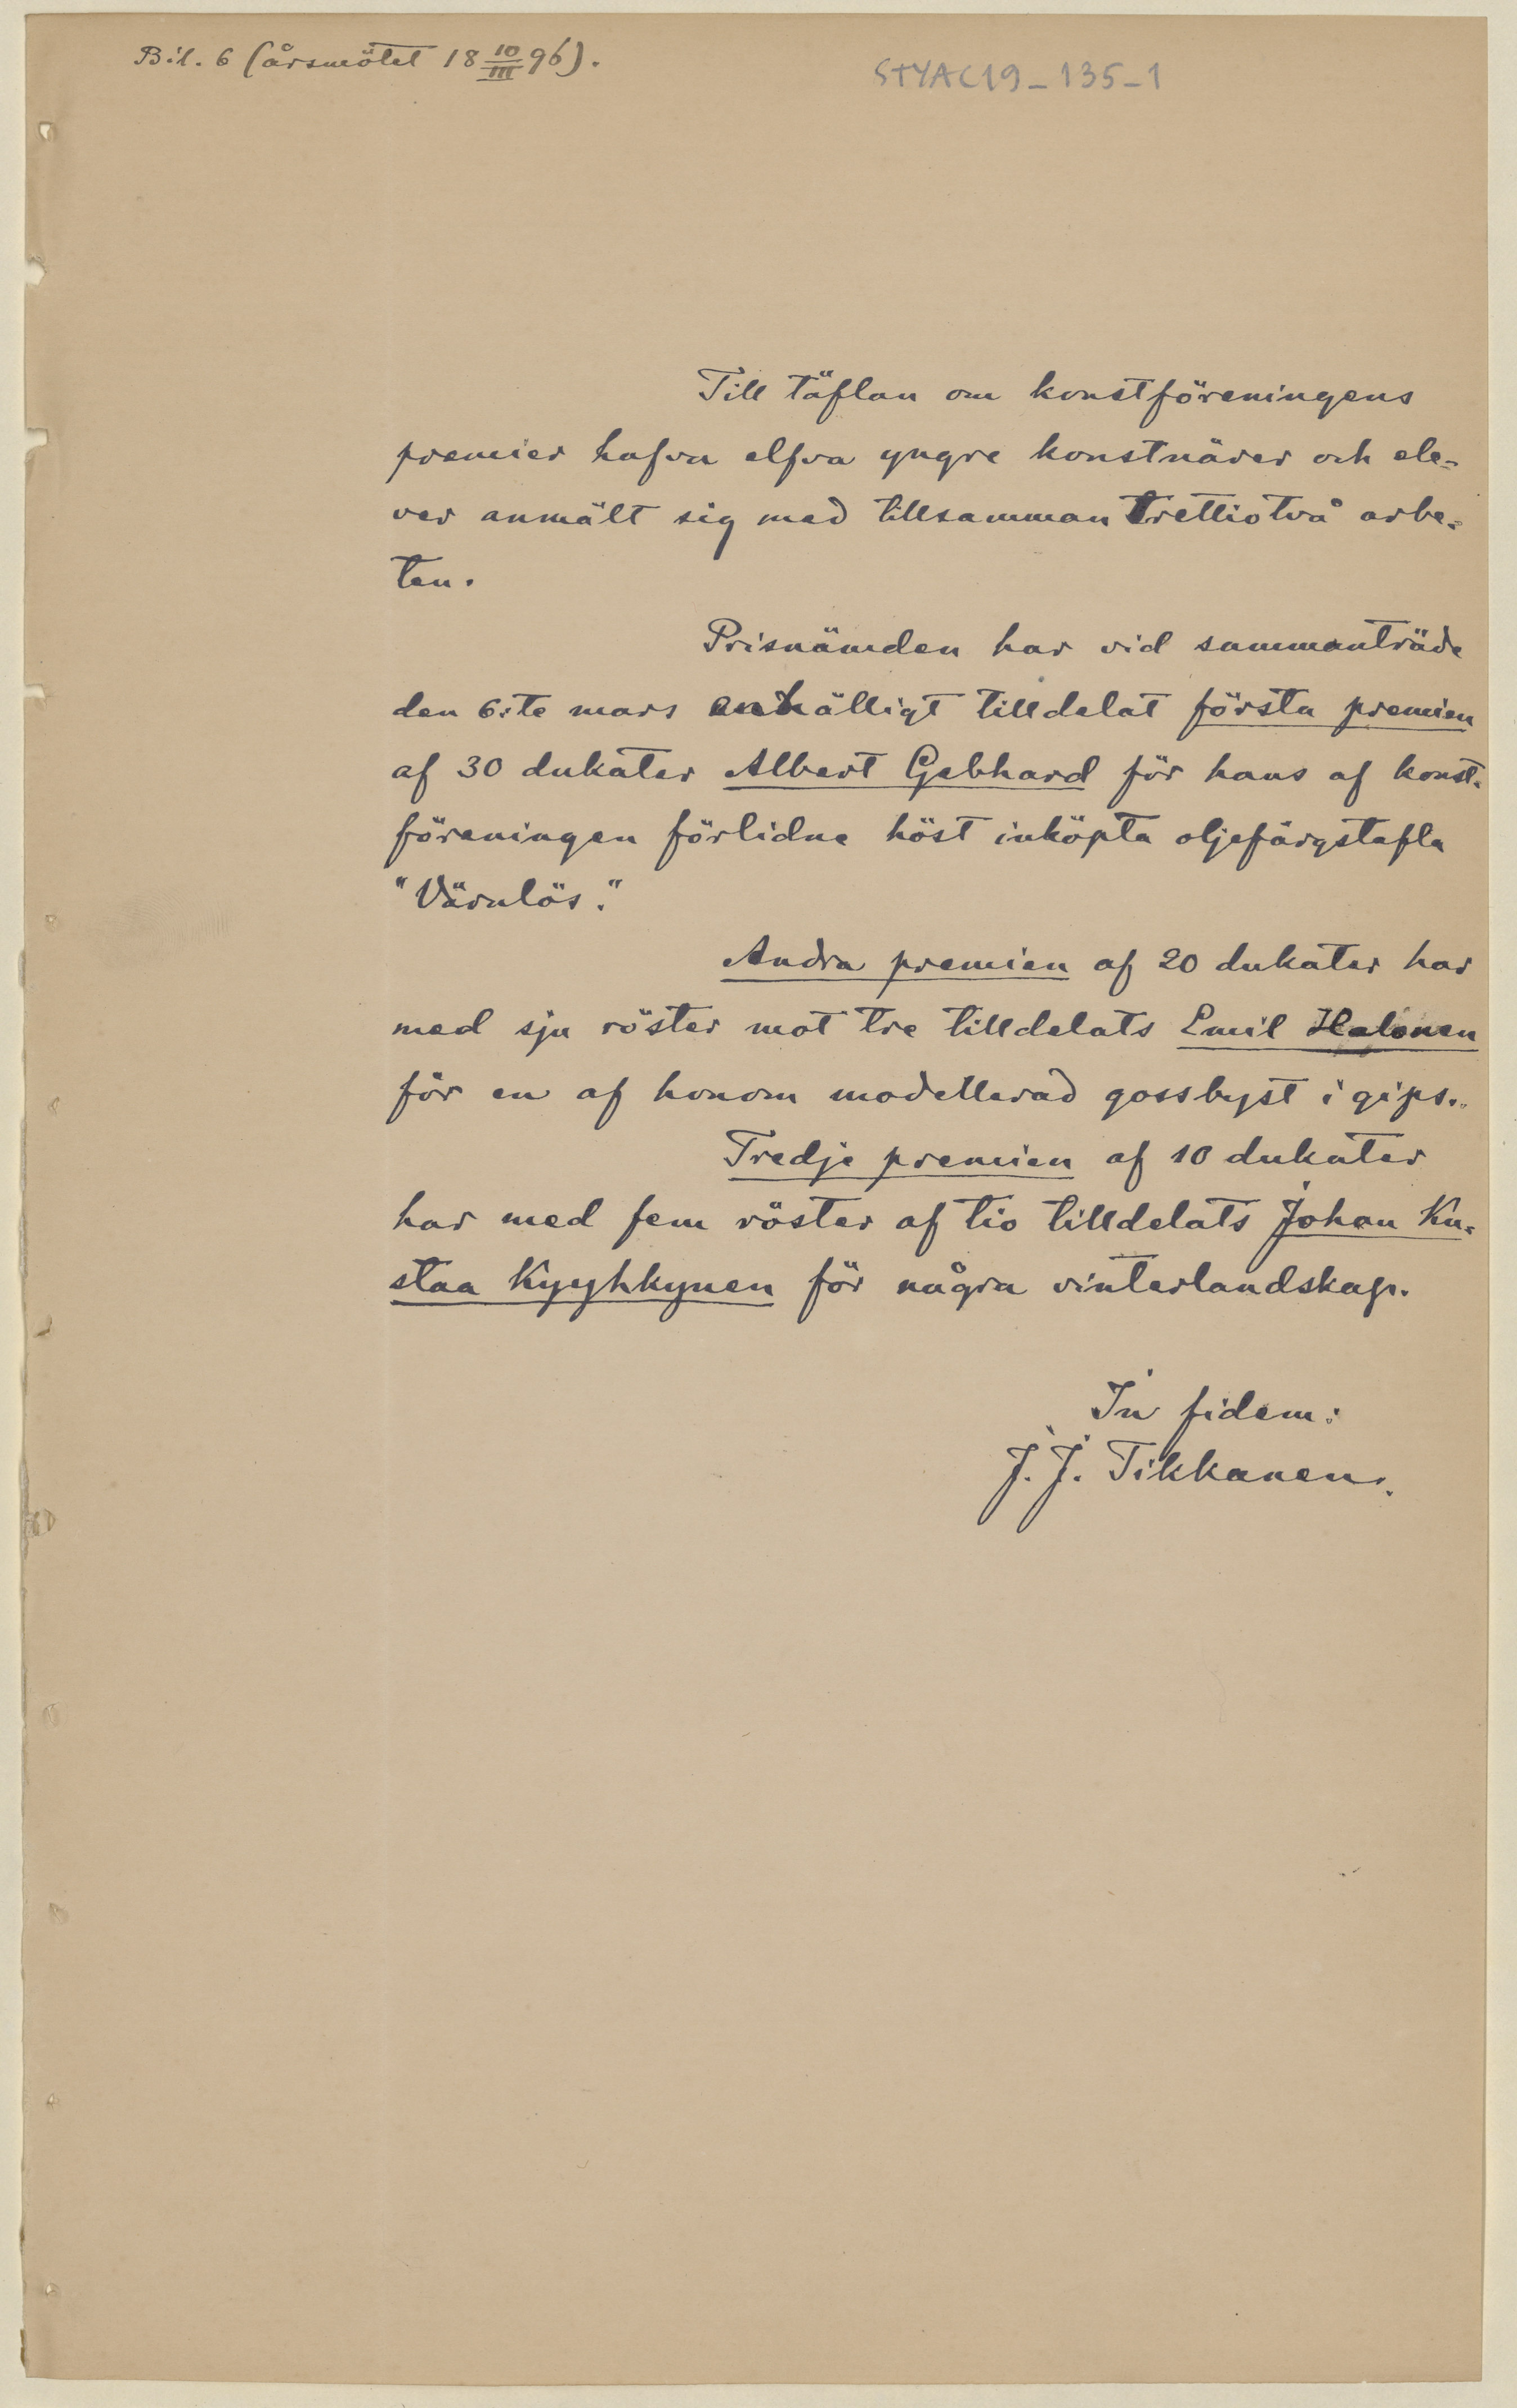 Bil. 6 (årsmötet 18 10/III 96).
STYAC19_135_1
Till täflan om konstföreningens
premier hafva elfva yngre konstnärer och ele=
ver anmält sig med tillsamman trettiotvå arbe=
ten.
Prisnämden har vid sammanträde
den 6:te mars enhälligt tilldelat första premien
af 30 dukater Albert Gebhard för hans af konst=
föreningen förlidne höst inköpta oljefärgstafla
"Värnlös."
Andra premien af 20 dukater har
med sju röster mot tre tilldelats Emil Halonen
för en af honom modellerad gossbyst i gips.
Tredje premien af 10 dukater
har med fem röster af tio tilldelats Johan Ku=
staa Kyyhkynen för några vinterlandskap.
In fidem:
J. J. Tikkanen.